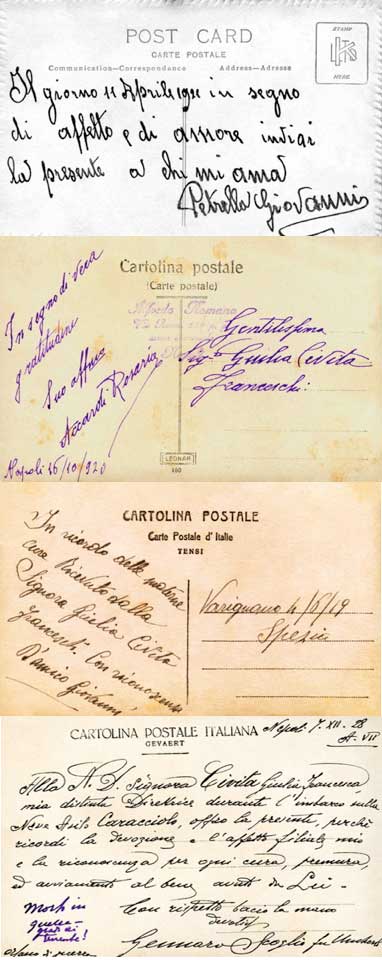 POST CARD
CARTE POSTALE
Communication—Correspondence Address—Adresse
STAMP
HERE
Il giorno 11 Aprile 1931 in segno
di affetto e di amore inviai
la presente a chi mi ama
Petrella Giovanni
Cartolina postale
(Carte postale)
Alfredo Romano
In segno di vera
gratitudine
Suo affmo
Accardi Rosario
Napoli 16/10/920
Gentilissima
Sigra Giulia Civita
Franceschi:
LEONAR
CARTOLINA POSTALE
Carte Postale d'Italie
TENSI
In ricordo delle materne
cure ricevute dalla
Signora Giulia Civita
Franceschi. Con riconoscenza
D'Amicio Giovanni
Varignano 4/8/19
Spezia
CARTOLINA POSTALE ITALIANA
GEVAERT
Napoli 7. XII. 28
A. VII
Alla N. D. Signora Civita Giulia Francesca
mia distinta Direttrice durante l'imbarco sulla
Nave Asilo Caracciolo, offro la presente, perchè
ricordi la devozione e l'affetto filiale mio
e la riconoscenza per ogni cura, premura
ed avviamenti al bene avuti da Lei-
Con rispetto bacio la mano
devotis
Gennaro Scoglio fu
Morto in
guerra
orfano di guerra